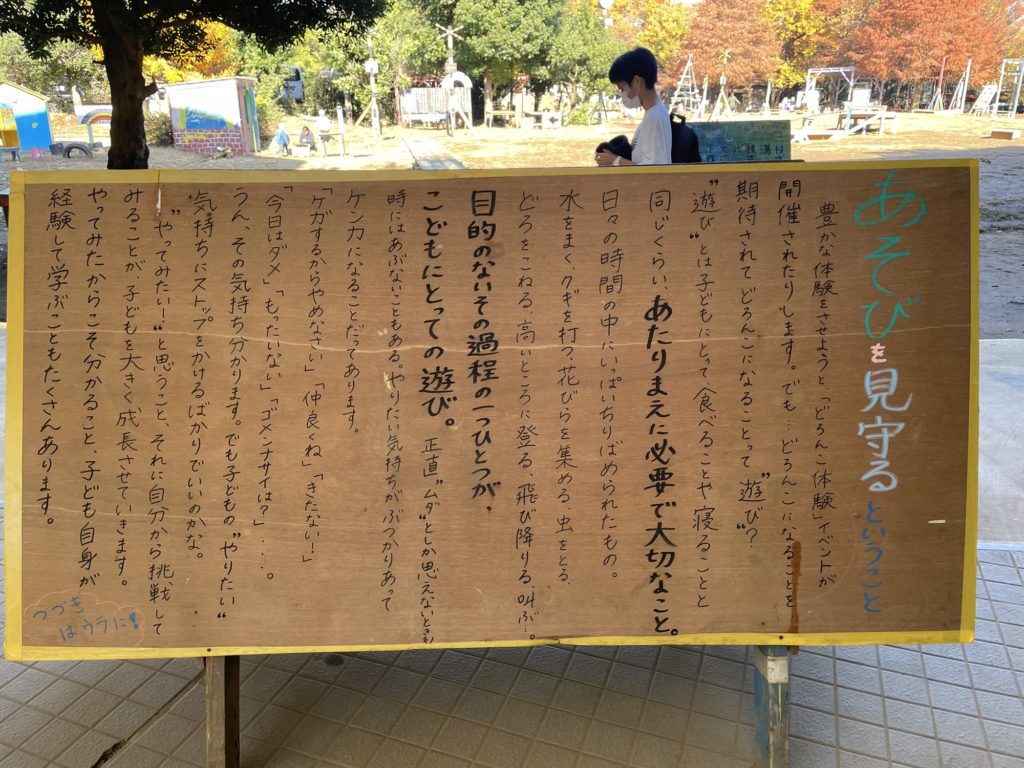 あそびを見守るということ
豊かな体験をさせようと、「どろんこ体験」イベントが
開催されたりします。でも…どろんこになることを
期待されてどろんこになることって"遊び"?
"遊び"とは子どもにとって、食べることや寝ることと
同じくらい、あたりまえに必要で大切なこと。
日々の時間の中にいっぱいちりばめられたもの。
水をまく、クギを打つ、花びらを集める、虫をとる、
どろをこねる、高いところに登る、飛び降りる、叫ぶ…。
目的のないその過程の一つひとつが、
こどもにとっての遊び。正直"ムダ"としか思えないときも
時にはあぶないこともある。やりたい気持ちがぶつかりあって
ケンカになることだってあります。
「ケガするからやめなさい」「仲良くね」「きたない!」
「今日はダメ」「もったいない」「ゴメンナサイは?」・・・。
うん、その気持ち分かります。でも子どもの"やりたい"
気持ちにストップをかけるばかりでいいのかな。
"やってみたい!"と思うこと、それに自分から挑戦して
みることが、子どもを大きく成長させていきます。
やってみたからこそ分かること、子ども自身が
経験して学ぶこともたくさんあります。
つづき
はウラに!